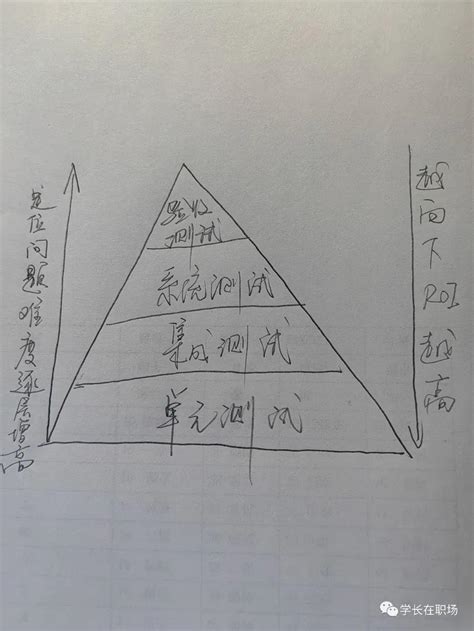 验收
测试
系统测试
集成测试
单元测试
定位问题难度逐层增高
越向下ROI越高
学长在职场